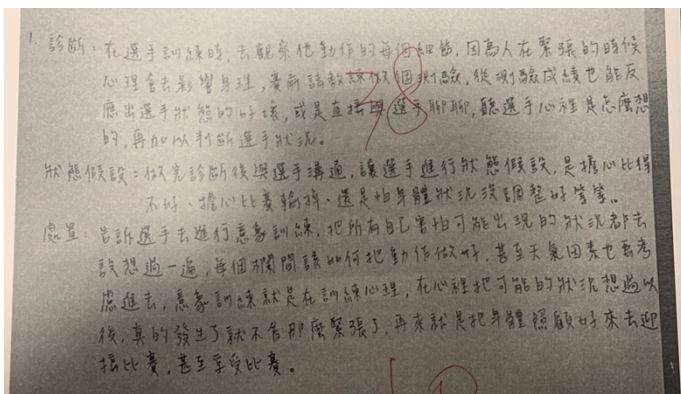 1. 診斷：在選手訓練時，去觀察他動作的每個細節，因為人在緊張的時候
心理會去影響身理，賽前請教練做個測驗，從測驗成績也能反
應出選手狀態的好壞，或是直接與選手聊聊，聽選手心裡是怎麼想
的，再加以判斷選手狀況。
狀態假設：做完診斷後與選手溝通，讓選手進行狀態假設，是擔心比得
不好、擔心比賽輸掉、還是怕身體狀況沒調整好等等。
處置：告訴選手去進行意象訓練，把所有自己害怕可能出現的狀況都去
設想過一遍，每個欄間該如何把動作做好，甚至天氣因素也要考
慮進去，意象訓練就是在訓練心理，在心裡把可能的狀況想過以
後，真的發生了就不會那麼緊張了，再來就是把身體照顧好來去迎
接比賽，甚至享受比賽。
38